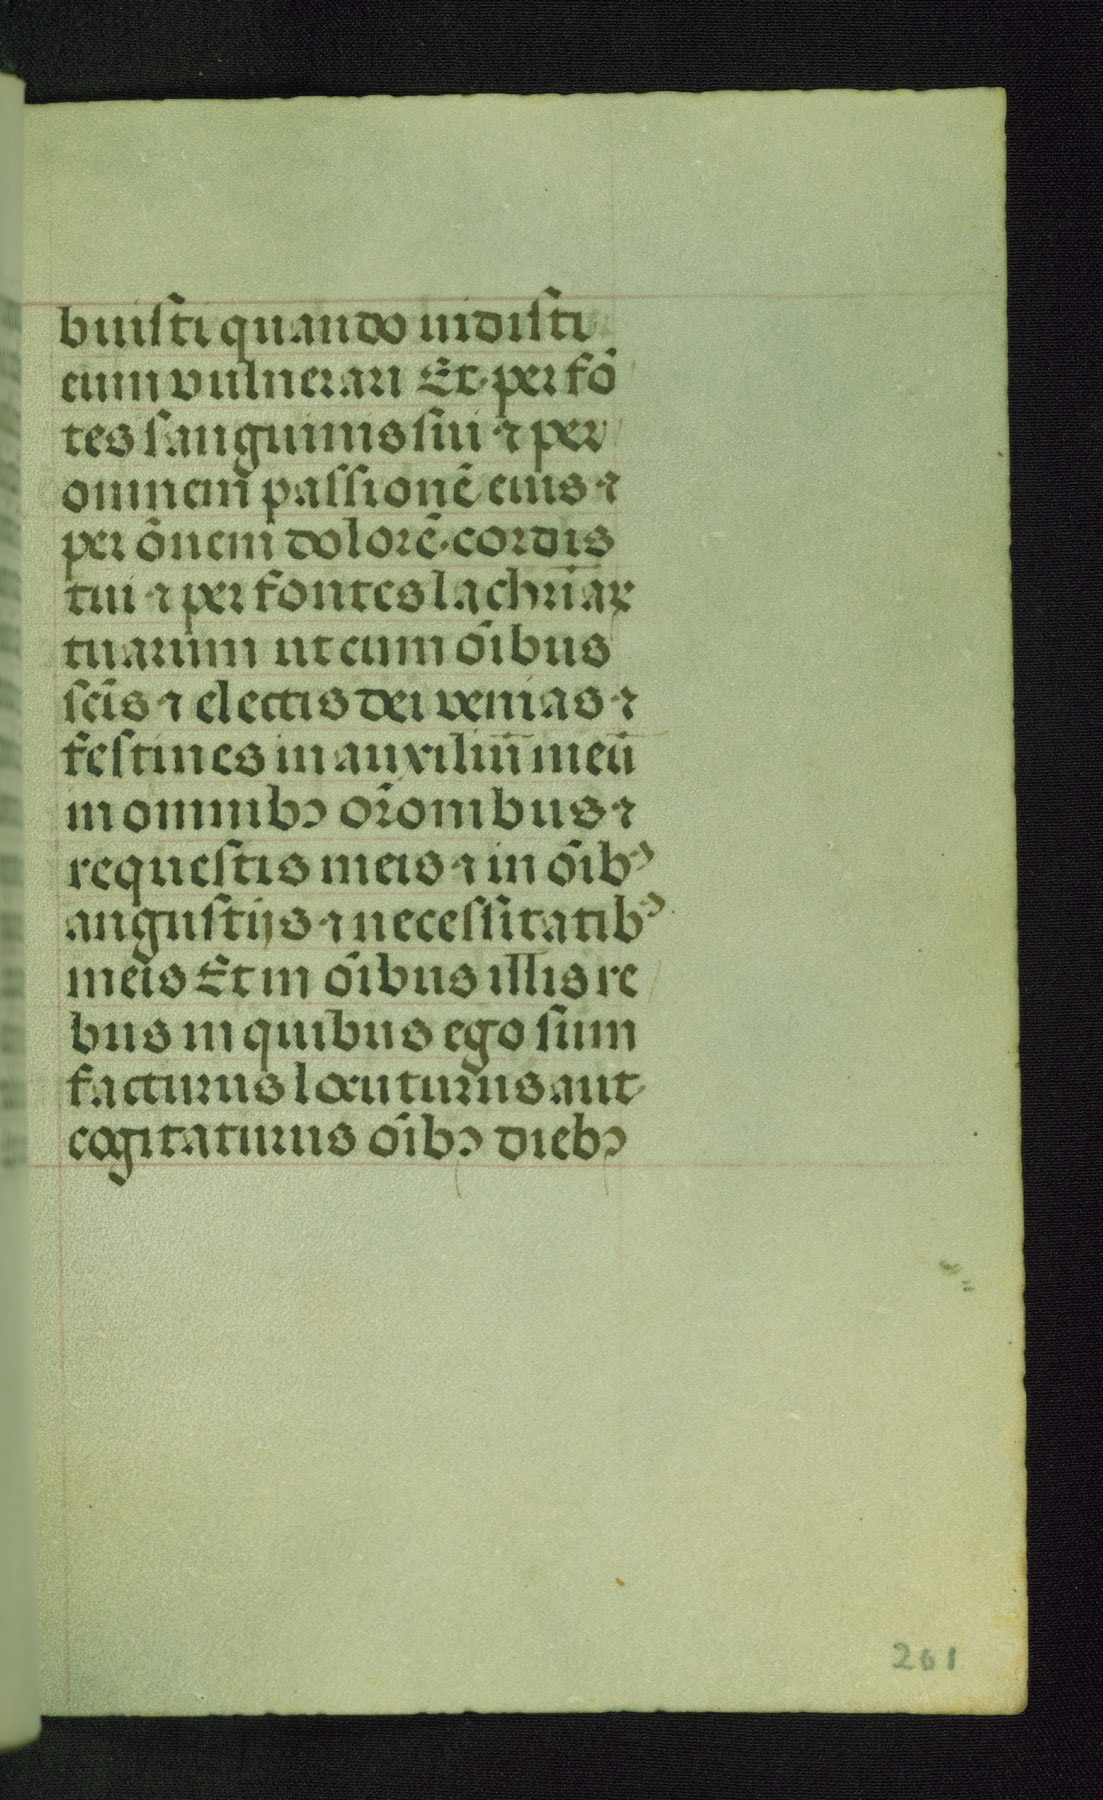 buisti quando uidisti
eum vulnerari Et per fō
tes sanguinis sui ⁊ per
omnem̄ passionē eius ⁊
per ōnem dolorē cordis
tui ⁊ per fontes lachrīaꝝ
tuarum ut cum oībus
scīs ⁊ electis dei venias ⁊
festines in auxiliū meū
in omnibꝰ orōnibus ⁊
requestis meis ⁊ in oībꝰ
angustijs ⁊ necessitatibꝰ
meis Et in oībus illis re
bus in quibus ego sum
facturus locuturus aut
cogitaturus oībꝰ diebꝰ
261